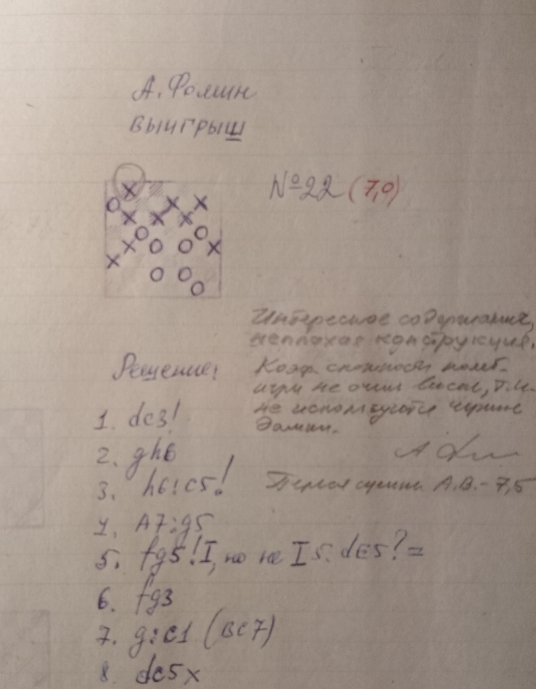 А. Фомин
ВЫИГРЫШ
№22 (7,0)
Интересное содержание,
неплохая конструкция.
Коэф. сложности
игры не очень высок, т.к.
не используются черные
дамки.
Первая оценка А.В. - 7,5
Решение:
1. dc3!
2. gh6
3. h6:c5!
4. A7:g5
5. fg5! I, но не I 5. dE5? =
6. fg3
7. g:c1 (BC7)
8. dc5x